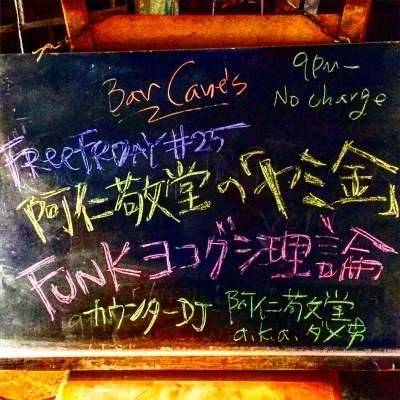 Bar Cane's
9pm-
No charge
FREEFRDAY #25
阿仁敬堂の「ヤミ金」
FUNKヨコグシ理論
カウンターDJ 阿仁敬堂
a.k.a. ダメ男